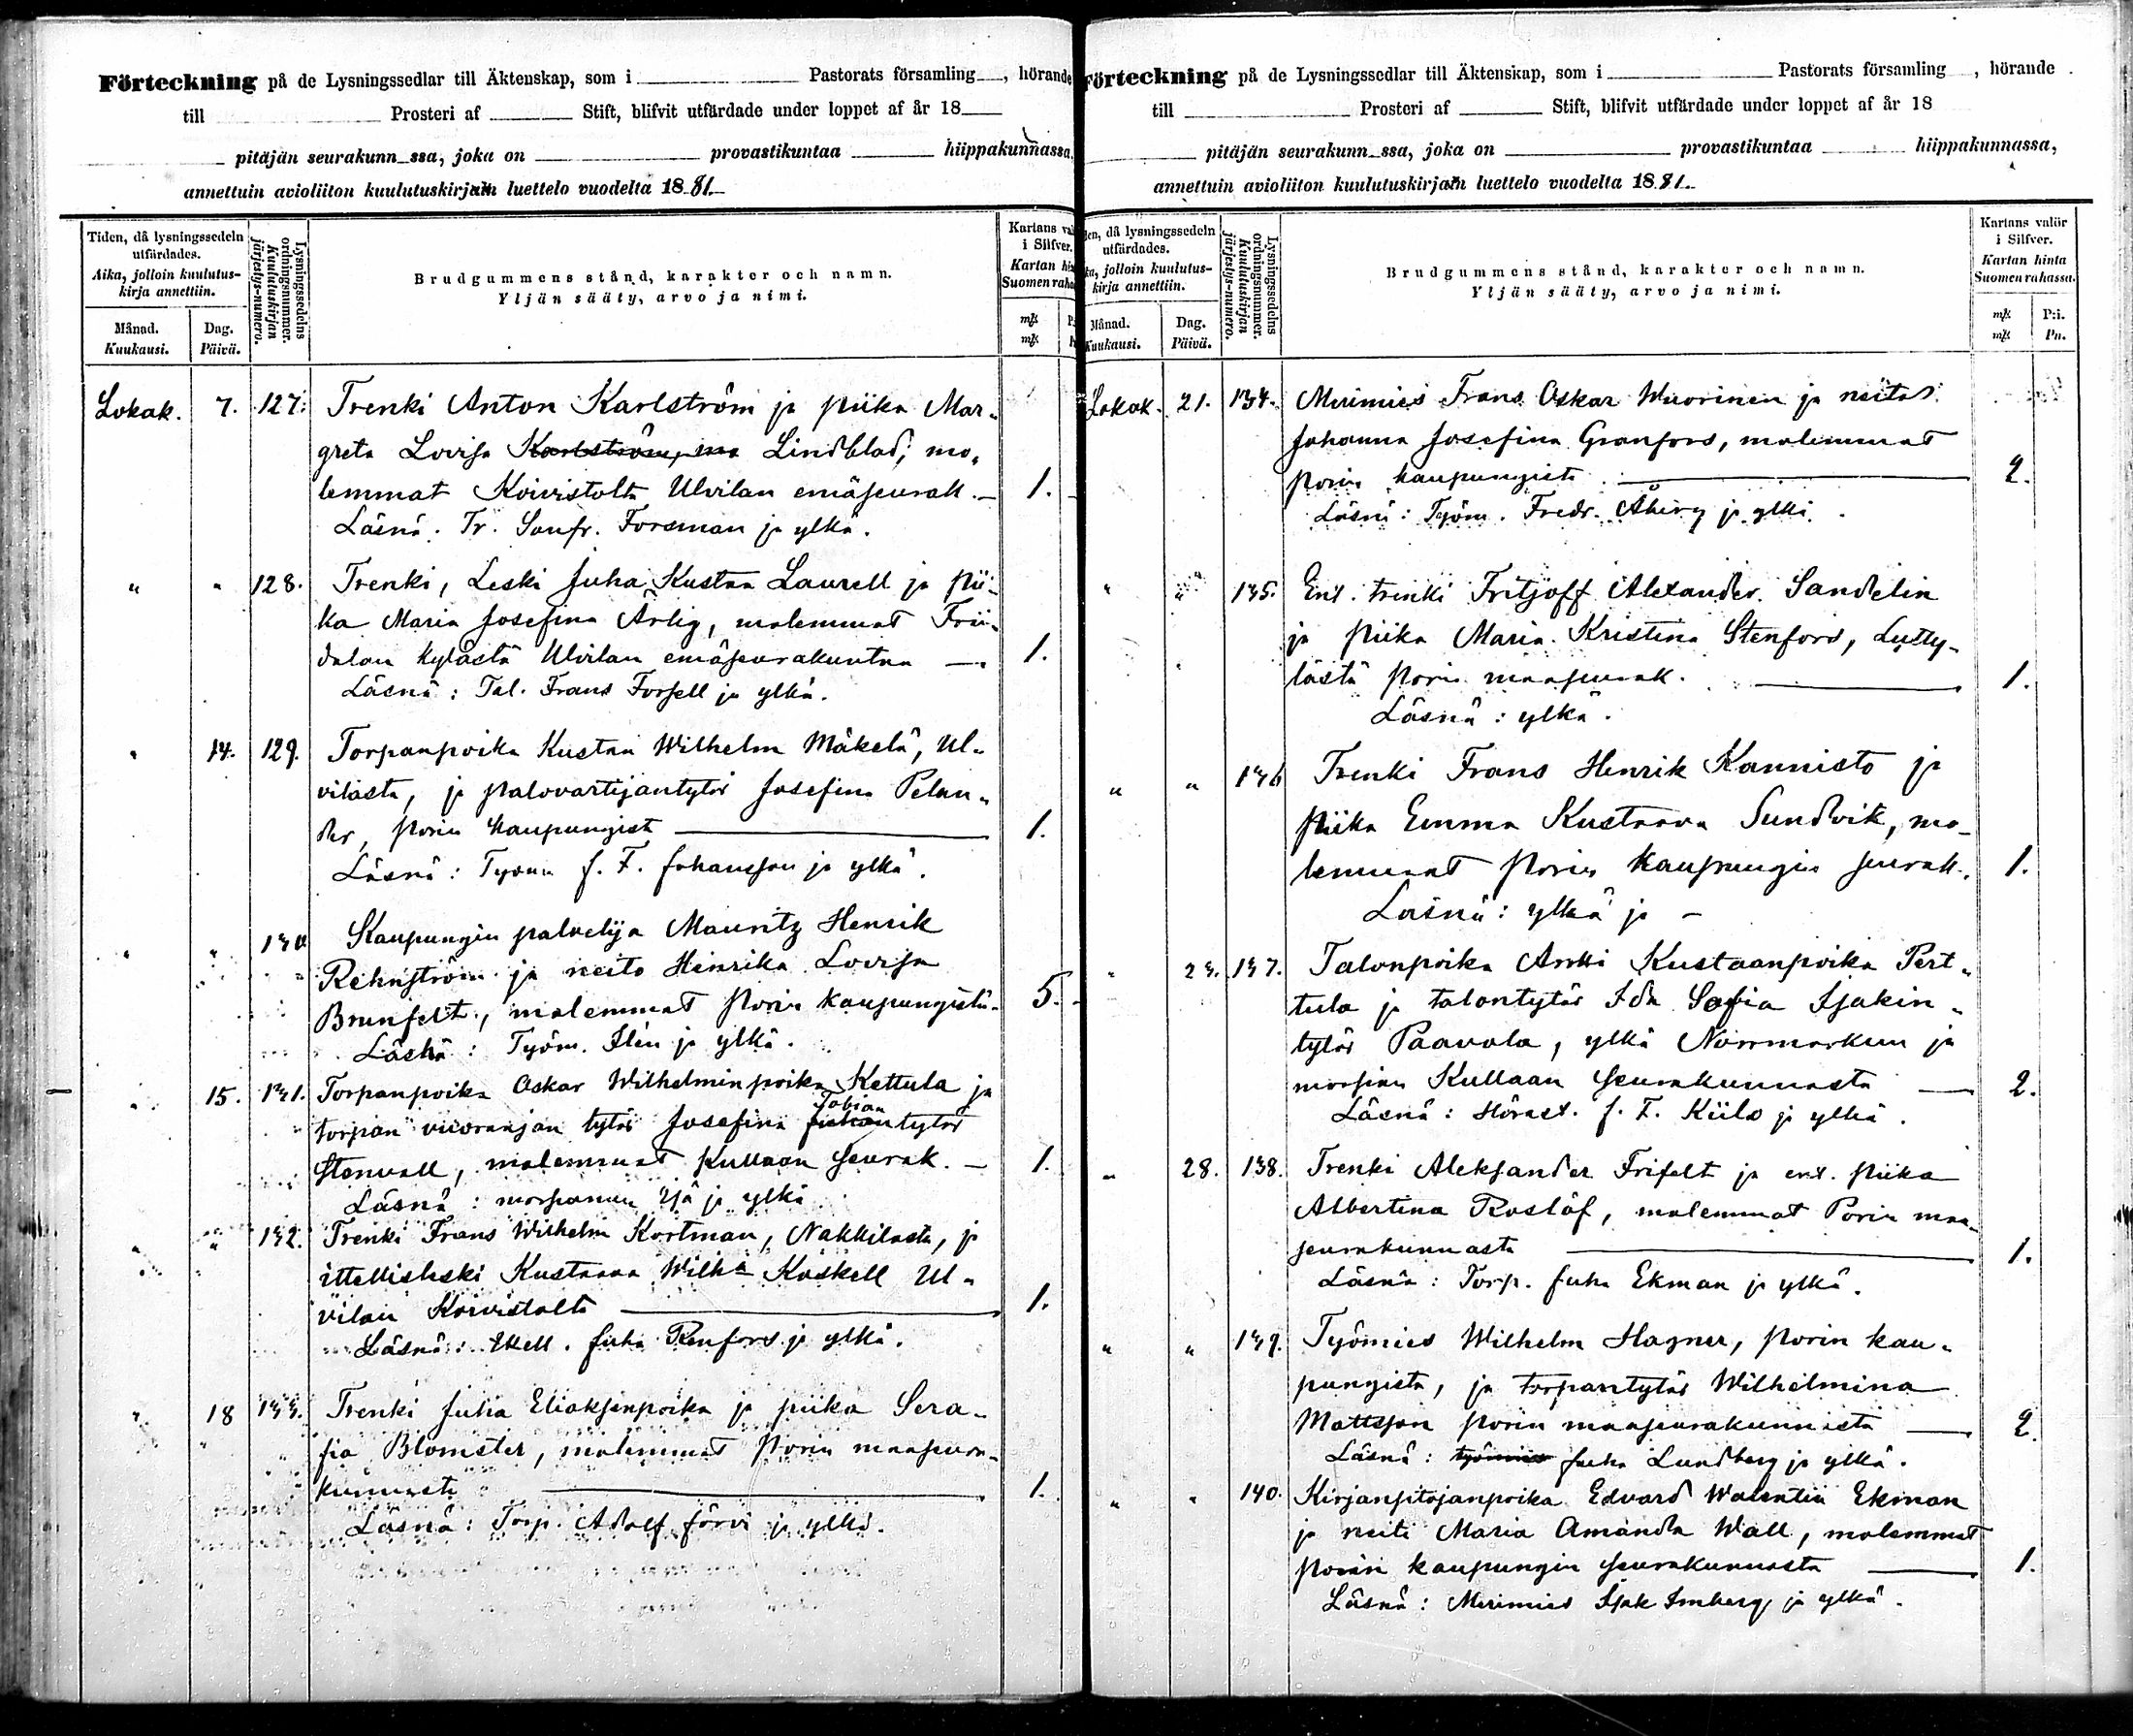 Förteckning på de Lysningssedlar till Äktenskap, som i Pastorats församling, hörande
till Prosteri af Stift, blifvit utfärdade under loppet af år 18
pitäjän seurakunn ssa, joka on provastikuntaa hiippakunnassa,
annettuin avioliiton kuulutuskirjain luettelo vuodelta 1881.
Tiden, då lysningssedeln utfärdades.
Aika, jolloin kuulutus-kirja annettiin.
Månad.
Kuukausi.
Dag.
Päivä.
Lysningssedelns ordningsnummer.
Kuulutuskirjan järjestys-numero.
Brudgummens stånd, karakter och namn.
Yljän sääty, arvo ja nimi.
Kartans
i Silfver.
Kartan
Suomen
mk
mk
Lokak. 7. 127. Trenki Anton Karlström ja piika Mar-
greta Lovisa Karlström, Lindblad, mo-
lemmat Koivistolta Ulvilan emäseurak. 1.
Läsnä. Tr. Forsman ja ylkä.
" " 128. Trenki, Leski Juha Kustaa Laurell ja pii-
ka Maria Josefina Ärlig, molemmat Frii-
dalan kylästä Ulvilan emäseurakuntaa 1.
Läsnä: Tal. Frans Forsell ja ylkä.
" 14. 129. Torpanpoika Kustaa Wilhelm Mäkelä, Ul-
vilasta, ja palovartijantytär Josefina Pelan-
der, Porin kaupungist 1.
Läsnä: Työm J. F. Johansson ja ylkä.
" " 130 Kaupungin palvelija Mauritz Henrik
Rehnström ja neito Henrika Lovisa
Brunfelt, molemmat Porin kaupungista 5.
Läsnä: Työm. Ilén ja ylkä.
" 15. 131. Torpanpoika Oskar Wilhelminpoika Kettula ja
torpan vuoraajan tytär Josefina Tobian tytär
Stenvall, molemmat Kullaan seurak. 1.
Läsnä: morsiamen isä ja ylkä
" " 132. Trenki Frans Wilhelm Kortman, Nakkilasta, ja
ittellisleski Kustaava Wilh:a Koskell Ul-
vilan Koivistolta 1.
Läsnä: Itsell. Juha Renfors ja ylkä.
" 18 133. Trenki Juha Eliaksenpoika ja piika Sera-
fia Blomster, molemmat Porin maaseura-
kunnasta 1.
Läsnä: Torp. Adolf Järvi ja ylkä.
Förteckning på de Lysningssedlar till Äktenskap, som i Pastorats församling, hörande
till Prosteri af Stift, blifvit utfärdade under loppet af år 18
pitäjän seurakunn ssa, joka on provastikuntaa hiippakunnassa,
annettuin avioliiton kuulutuskirjain luettelo vuodelta 1881.
då lysningssedeln utfärdades.
jolloin kuulutus-kirja annettiin.
Månad.
Kuukausi.
Dag.
Päivä.
Lysningssedelns ordningsnummer.
Kuulutuskirjan järjestys-numero.
Brudgummens stånd, karakter och namn.
Yljän sääty, arvo ja nimi.
Kartans valör
i Silfver.
Kartan hinta
Suomen rahassa.
mk P:i.
mk Pn.
Lokak. 21. 134. Merimies Frans Oskar Wuorinen ja neito
Johanna Josefina Granfors, molemmat
Porin kaupungista 2.
Läsnä: Työm. Fredr. Åberg ja ylkä.
" " 135. Ent. trenki Fritjoff Alexander Sandelin
ja piika Maria Kristina Stenfors, Lutty-
lästä Porin maaseurak. 1.
Läsnä: ylkä.
" " 136 Trenki Frans Henrik Kannisto ja
piika Emma Kustaava Sundvik, mo-
lemmat Porin kaupungin seurak. 1.
Läsnä: ylkä ja -
" 23. 137. Talonpoika Antti Kustaanpoika Pert-
tula ja talontytär Ida Sofia Isakin-
tytär Paavola, ylkä Norrmarkun ja
morsian Kullaan seurakunnasta 2.
Läsnä: J. F. Kiilo ja ylkä.
" 28. 138. Trenki Aleksander Frifelt ja ent. piika
Albertina Roslöf, molemmat Porin maa-
seurakunnasta 1.
Läsnä: Torp. Juha Ekman ja ylkä.
" " 139. Työmies Wilhelm Hagner, Porin kau-
pungista, ja torpantytär Wilhelmina
Mattsson Porin maaseurakunnasta 2.
Läsnä: työmies Juha Lundberg ja ylkä.
" " 140. Kirjanpitäjanpoika Edvard Walentin Ekman
ja neiti Maria Amanda Wall, molemmat
Porin kaupungin seurakunnasta 1.
Läsnä: Merimies Isak Imberg ja ylkä.